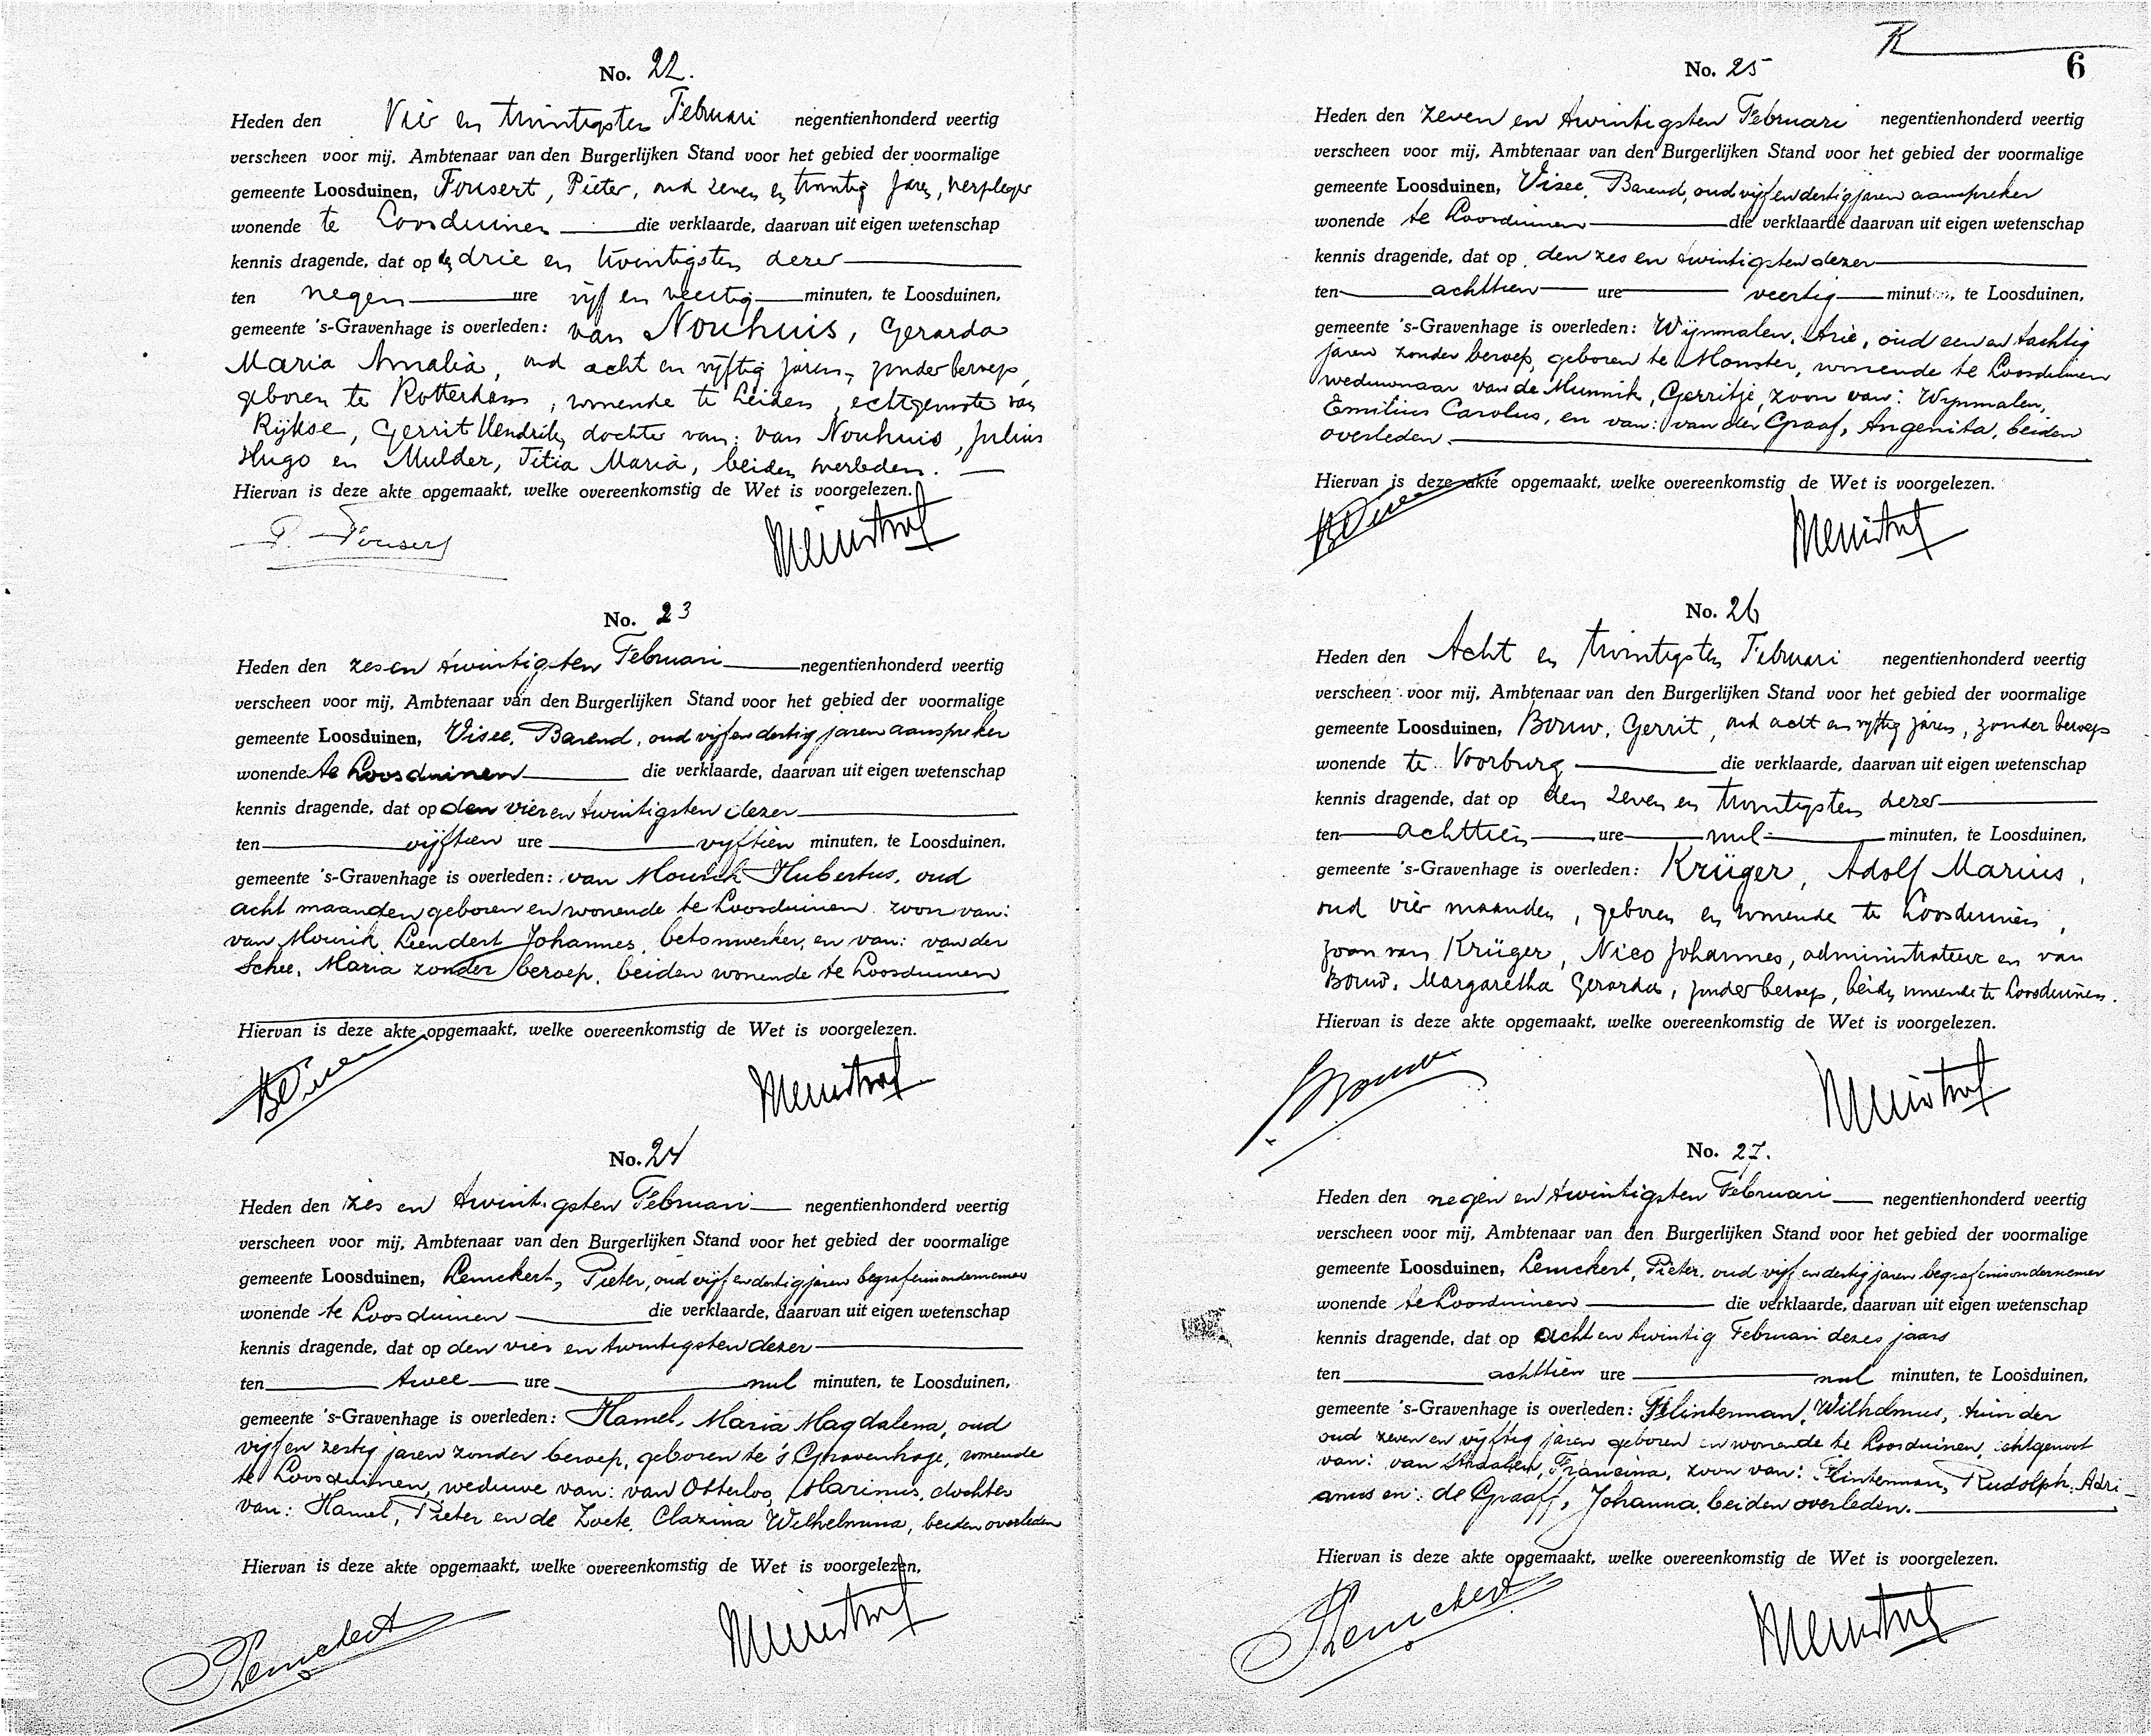 No. 22.
Heden den Vier en twintigsten Februari negentienhonderd veertig
verscheen voor mij, Ambtenaar van den Burgerlijken Stand voor het gebied der voormalige
gemeente Loosduinen, Fousert, Pieter, oud zeven en twintig jaren, verpleger
wonende te Loosduinen die verklaarde, daarvan uit eigen wetenschap
kennis dragende, dat op den drie en twintigsten dezer
ten negen ure vijf en veertig minuten, te Loosduinen,
gemeente 's-Gravenhage is overleden: van Nouhuis, Gerarda
Maria Amalia, oud acht en vijftig jaren, zonder beroep,
geboren te Rotterdam, wonende te Leiden, echtgenoote van
Rijkse, Gerrit Hendrik, dochter van: van Nouhuis, Julius
Hugo en Mulder, Titia Maria, beiden overleden.
Hiervan is deze akte opgemaakt, welke overeenkomstig de Wet is voorgelezen.
P. Fousert
No. 23
Heden den zes en twintigsten Februari negentienhonderd veertig
verscheen voor mij, Ambtenaar van den Burgerlijken Stand voor het gebied der voormalige
gemeente Loosduinen, Visee, Barend, oud vijf en dertig jaren aanspreker
wonende te Loosduinen die verklaarde, daarvan uit eigen wetenschap
kennis dragende, dat op den vier en twintigsten dezer
ten vijftien ure vijftien minuten, te Loosduinen,
gemeente 's-Gravenhage is overleden: van Mourik Hubertus, oud
acht maanden geboren en wonende te Loosduinen zoon van:
van Mourik Leendert Johannes, betonwerker, en van: van der
Schee, Maria zonder beroep, beiden wonende te Loosduinen
Hiervan is deze akte opgemaakt, welke overeenkomstig de Wet is voorgelezen.
BVisee
No. 24
Heden den zes en twintigsten Februari negentienhonderd veertig
verscheen voor mij, Ambtenaar van den Burgerlijken Stand voor het gebied der voormalige
gemeente Loosduinen, Lemckert, Pieter, oud vijf en dertig jaren begrafenisondernemer
wonende te Loosduinen die verklaarde, daarvan uit eigen wetenschap
kennis dragende, dat op den vier en twintigsten dezer
ten twee ure nul minuten, te Loosduinen,
gemeente 's-Gravenhage is overleden: Hamel, Maria Magdalena, oud
vijf en zestig jaren zonder beroep, geboren te 's Gravenhage, wonende
te Loosduinen, weduwe van: van Otterloo, Marinus, dochter
van: Hamel, Pieter en de Zoete, Clazina Wilhelmina, beiden overleden
Hiervan is deze akte opgemaakt, welke overeenkomstig de Wet is voorgelezen.
PLemckert
R
6
No. 25
Heden den zeven en twintigsten Februari negentienhonderd veertig
verscheen voor mij, Ambtenaar van den Burgerlijken Stand voor het gebied der voormalige
gemeente Loosduinen, Visee, Barend, oud vijf en dertig jaren aanspreker
wonende te Loosduinen die verklaarde daarvan uit eigen wetenschap
kennis dragende, dat op den zes en twintigsten dezer
ten achttien ure veertig minuten, te Loosduinen,
gemeente 's-Gravenhage is overleden: Wijnmalen, Arie, oud een en tachtig
jaren zonder beroep, geboren te Monster, wonende te Loosduinen
weduwnaar van de Munnik, Gerritje, zoon van: Wijnmalen,
Emilius Carolus, en van: van der Graaf, Angenita, beiden
overleden.
Hiervan is deze akte opgemaakt, welke overeenkomstig de Wet is voorgelezen.
BVisee
No. 26
Heden den Acht en twintigsten Februari negentienhonderd veertig
verscheen voor mij, Ambtenaar van den Burgerlijken Stand voor het gebied der voormalige
gemeente Loosduinen, Bouw, Gerrit, oud acht en vijftig jaren, zonder beroep
wonende te Voorburg die verklaarde, daarvan uit eigen wetenschap
kennis dragende, dat op den zeven en twintigsten dezer
ten achttien ure nul minuten, te Loosduinen,
gemeente 's-Gravenhage is overleden: Krüger, Adolf Marius,
oud vier maanden, geboren en wonende te Loosduinen,
zoon van Krüger, Nico Johannes, administrateur en van
Bouw, Margaretha Gerarda, zonder beroep, beiden wonende te Loosduinen.
Hiervan is deze akte opgemaakt, welke overeenkomstig de Wet is voorgelezen.
GBouw
No. 27.
Heden den negen en twintigsten Februari negentienhonderd veertig
verscheen voor mij, Ambtenaar van den Burgerlijken Stand voor het gebied der voormalige
gemeente Loosduinen, Lemckert, Pieter, oud vijf en dertig jaren begrafenisondernemer
wonende te Loosduinen die verklaarde, daarvan uit eigen wetenschap
kennis dragende, dat op acht en twintig Februari dezes jaars
ten achttien ure nul minuten, te Loosduinen,
gemeente 's-Gravenhage is overleden: Flinterman, Wilhelmus, tuinder
oud zeven en vijftig jaren geboren en wonende te Loosduinen, echtgenoot
van: van Straalen, Francina, zoon van: Flinterman, Rudolph Adri-
anus en: de Graaff, Johanna, beiden overleden.
Hiervan is deze akte opgemaakt, welke overeenkomstig de Wet is voorgelezen.
PLemckert